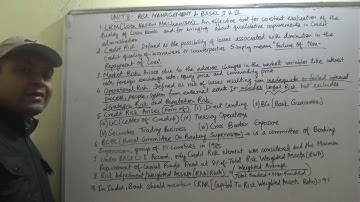 UNIT 8: RISK MANAGEMENT & BASEL I & II
1. LRM (Loan Review Mechanism): An effective tool for constant evaluation of the
Quality of Loan Book and for bringing about qualitative improvements in Credit
2. Credit Risk: Defined as the possibility of losses associated with diminution in the
Credit quality of borrowers or counterparties. Simply means "Failure of Non-
Repayment of Loan".
3. Market Risk: Arises due to the adverse changes in the market variables like interest
rate, foreign exchange rate, equity price and commodity price
4. Operational Risk: Defined as risk of loss resulting from inadequate or failed internal
process, people & system or from external event. It includes legal risk but excludes
Strategic Risk and Reputation Risk
5. Credit Risk Arises (Form of): (i) Direct Lending (ii) BGs (Bank Guarantee)
(iii) LC (Letter of Credit) (iv) Treasury Operations
(v) Securities Trading Business (vi) Cross Border Exposure
6. BCBS (Basel Committee On Banking Supervision) is a committee of Banking
Supervision, group of 10 countries in
7. Under BASEL-I Accord, only Credit Risk element was considered and the Minimum
Requirement of Capital Funds fixed at 8% of Total Risk Weighted Assets (RWA)
8. Risk Adjustment / Weighted Assets (RAA/RWA) = Weighted Average
(Funded + Non-Funded)
9. In India, Banks should maintain CRAR (Capital To Risk Weighted Assets Ratio) = 9%